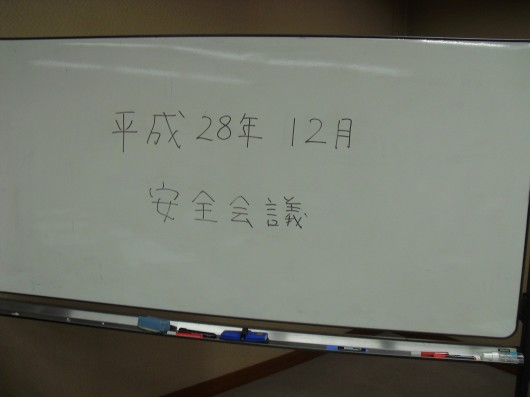 平成 28年 12月
安全会議